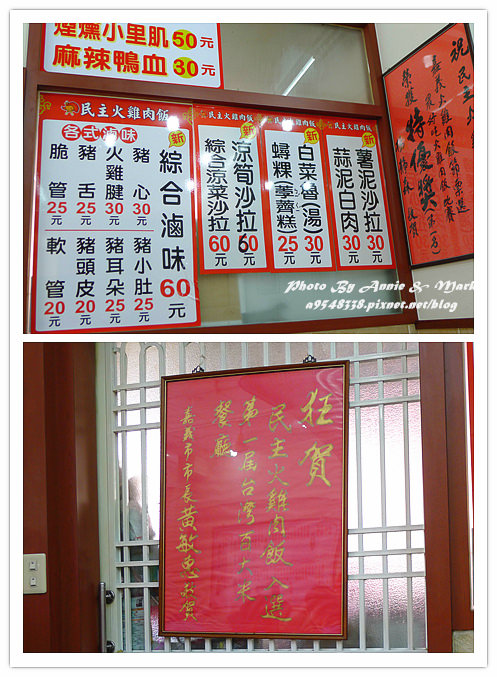 煙燻小里肌50元
麻辣鴨血30元
民主火雞肉飯
各式滷味
脆管25元
豬舌25元
火雞腱30元
豬心30元
軟管20元
豬頭皮20元
豬耳朵25元
豬小肚25元
新
綜合滷味60元
民主火雞肉飯
新
涼筍沙拉60元
綜合涼菜沙拉60元
民主火雞肉飯
新
白菜魯(湯)30元
蟳粿(荸薺糕)25元
新
薯泥沙拉30元
蒜泥白肉30元
祝民主火雞肉飯
嘉義火雞肉飯節票選
最好吃火雞肉飯比賽
榮獲特優獎
第一名
敬賀
Photo By Annie & Mark
a9548338.pixnet.net/blog
狂賀
民主火雞肉飯入選
第一屆台灣百大米
餐廳
嘉義市市長黃敏惠敬賀